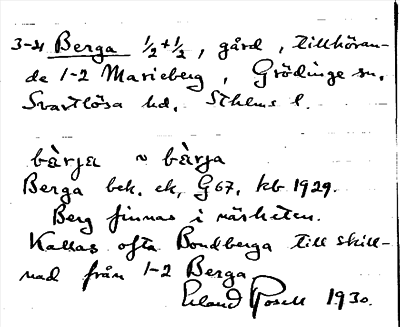 3-4 Berga ½+½, gård, tillhöran-
de 1-2 Marieberg, Grödinge sn.
Svartlösa hd. Sthlms l.
bærja ~ bærja
Berga bek. ek, G67, kb 1929.
Berg finnas i närheten.
Kallas ofta Bondberga till skill-
nad från 1-2 Berga
Erland Rosell 1930.